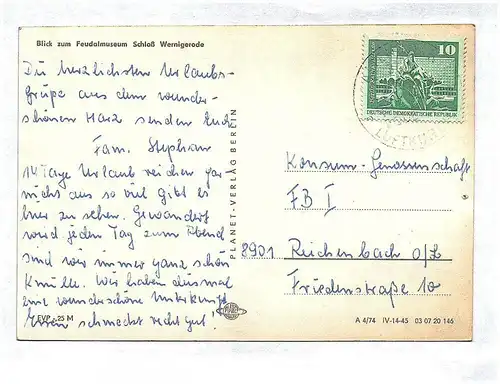 Blick zum Feudalmuseum Schloß Wernigerode
Die herzlichsten Urlaubs-
grüße aus dem wunder-
schönen Harz senden Euch
Fam. Stephan
14 Tage Urlaub reichen gar
nicht aus so viel gibt es
hier zu sehen. Gewandert
wird jeden Tag zum Abend
sind wir immer ganz schön
K.O. Wir haben diesmal
eine wunderschöne Unterkunft
Essen schmeckt recht gut.
EVP -,25 M
PLANET-VERLAG BERLIN
10
DEUTSCHE DEMOKRATISCHE REPUBLIK
LUFTKUR
Konsum-Genossenschaft
FB I
8901 Reichenbach O/L
Friedenstraße 10
A 4/74 IV-14-45 03 07 20 146